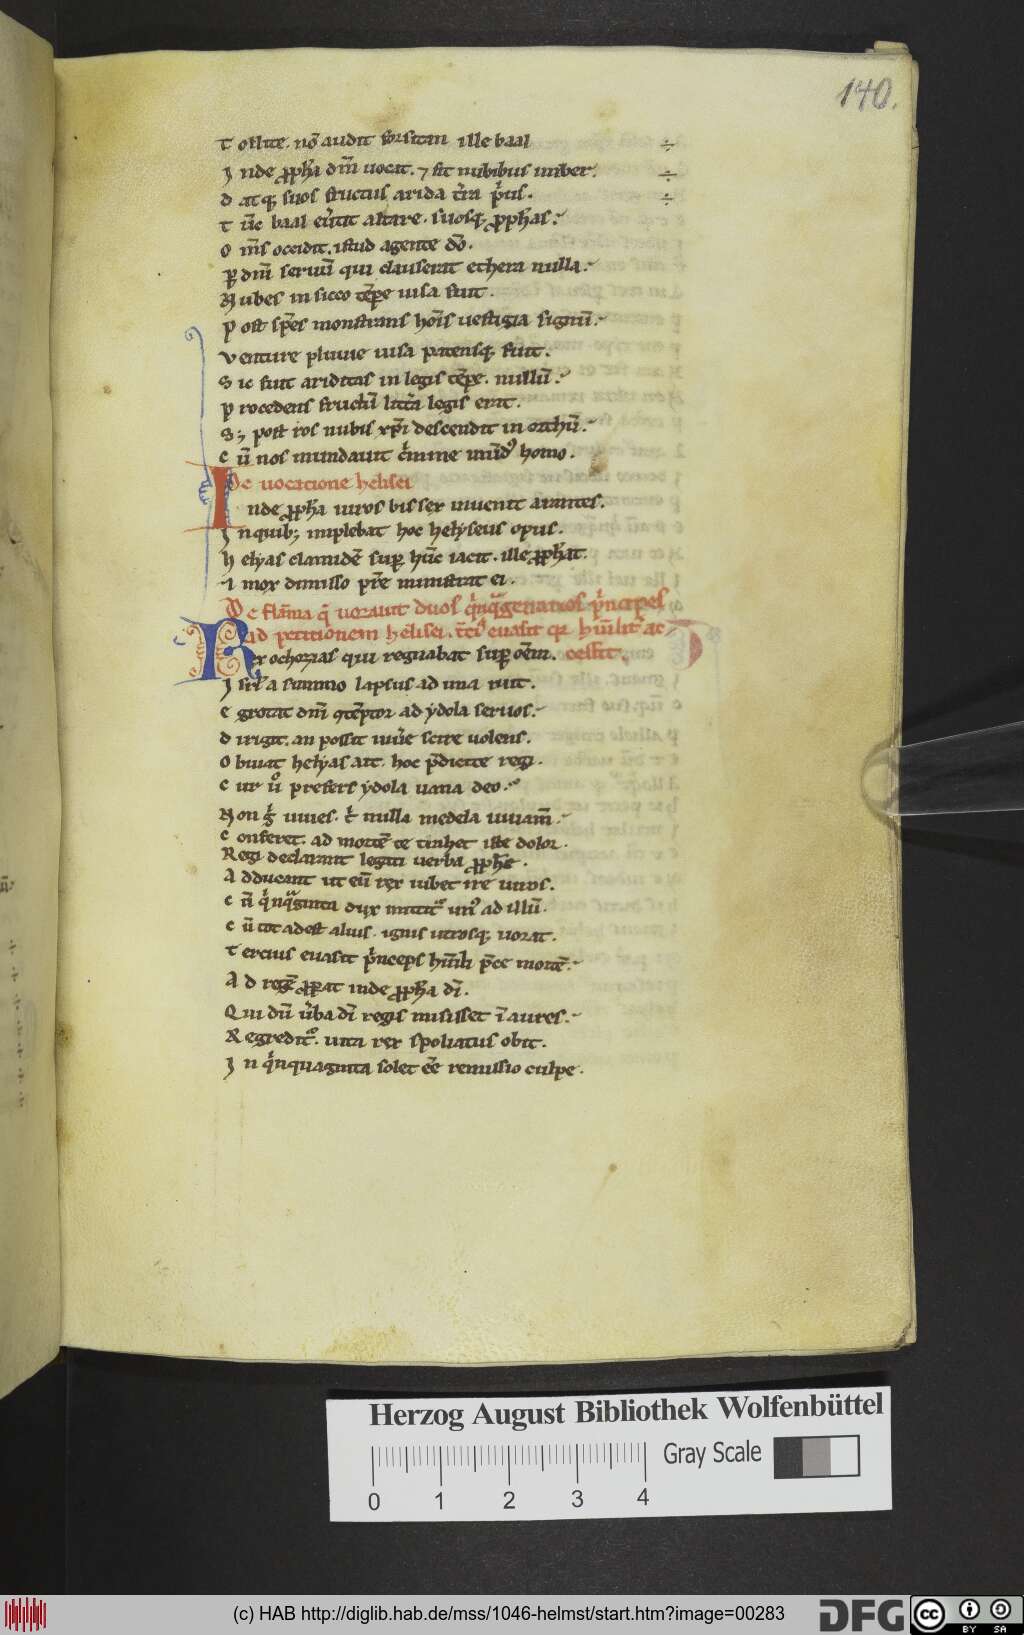 140.
T ollite. nō audit forsitan ille baal ÷
J nde ꝓpħa dm̄ uocat. ⁊ fit nubibus imber. ÷
d atq; suos fructus arida t̄ra p̓us. ÷
t ūc baal eu̓tit altare. suosq; ꝓpħas.
O m̄s occidit. istud agente dō.
ꝑ dm̄ seruū qui clauserat ethera nulla.
N ubes in sicco tēpe uisa fuit.
P ost sp̄es monstrans hoīs uestigia signū.
V enture pluuie uisa patensq; fuit.
S ic fuit ariditas in legis tēpe. nullū.
P rocedens fructū litt̄a legis erat.
S; post ros nubis xp̄i descendit in orbū.
C ū nos mundauit c̓mine mūdꝰ homo.
De uocatione helisei
I nde ꝓpħa uiros bis sex inuenit arantes.
J nquib; implebat hoc helyseus opus.
h elyas clamidē sup̱ hūc iacit. ille ꝓpħat.
⁊ mox dimisso pr̄e ministrat ei.
De flām̄a q̄ uorauit duos q̓nq̈genarios p̓ncipes
ad petitionem helisei. t̄ciꝰ euasit q̱ hūilit̓ ac
R ex ochozias qui regnabat sup̱ oēm. cessit.
J srl̓ a summo lapsus ad una ruit.
E grotat dm̄ ꝯtēptor ad ydola seruos.
D irigit. an possit uiu̓e scire uolens.
O buiat helyas ait. hoc p̄dicite regi.
C ur u̓o prefers ydola uana deo.
N on g̓ uiues. t̓ nulla medela iuuam̄.
C onferet. ad mortē te trahet iste dolor.
Regi declarant legati uerba ꝓpħe.
A dducant ut eū rex iubet ire uiros.
C ū q̓nq̈ginta dux mittit̓ unꝰ ad illū.
C ū tot adest alius. ignis utrosq; uorat.
T ercius euasit p̓nceps hūili p̄ce mortē.
A d regē ꝓꝑat inde ꝓpħa dī.
Qui dū u̓ba dī regis misisset ī aures.
R egredit̓. uita rex spoliatus obit.
J n q̓nquaginta solet eē remissio culpe.
Herzog August Bibliothek Wolfenbüttel
Gray Scale
0 1 2 3 4
(c) HAB http://diglib.hab.de/mss/1046-helmst/start.htm?image=00283
DFG
cc BY SA